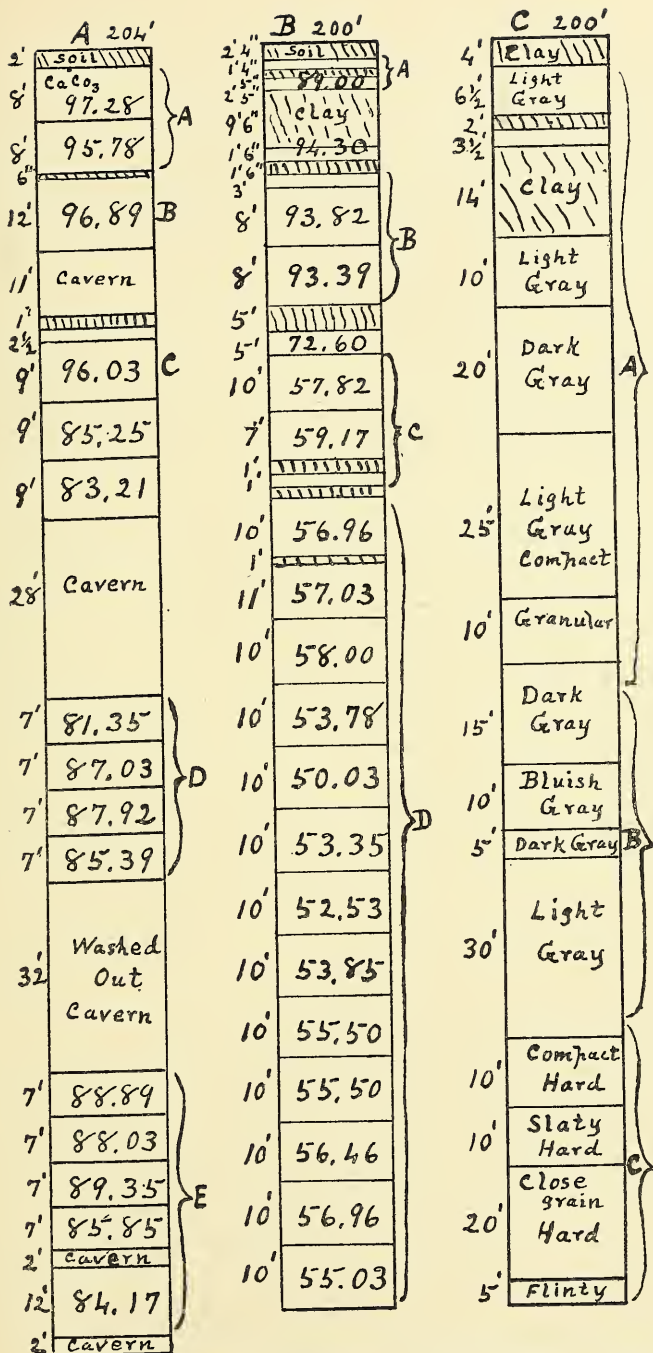 A 204'
2' Soil
CaCO3
8' 97.28
A
8' 95.78
6"
12' 96.89 B
11' Cavern
1'
2½
9' 96.03 C
9' 85.25
9' 83.21
28' Cavern
7' 81.35
7' 87.03
D
7' 87.92
7' 85.39
32' Washed
Out
Cavern
7' 88.89
7' 88.03
7' 89.35
E
7' 85.85
2' Cavern
12' 84.17
2' Cavern
B 200'
2'4" Soil
1'4"
A
89.00
2'5"
9'6" Clay
1'6" 94.30
1'6"
3'
8' 93.82
B
8' 93.39
5'
5' 72.60
10' 57.82
C
7' 59.17
1'
1'
10' 56.96
1'
11' 57.03
10' 58.00
10' 53.78
10' 50.03
D
10' 53.35
10' 52.53
10' 53.85
10' 55.50
10' 55.50
10' 56.46
10' 56.96
10' 55.03
C 200'
4' Clay
6½' Light
Gray
2'
3½'
14' Clay
10' Light
Gray
20' Dark
Gray
A
25' Light
Gray
Compact
10' Granular
15' Dark
Gray
10' Bluish
Gray
5' Dark Gray B
30' Light
Gray
10' Compact
Hard
10' Slaty
Hard
C
20' Close
grain
Hard
5' Flinty